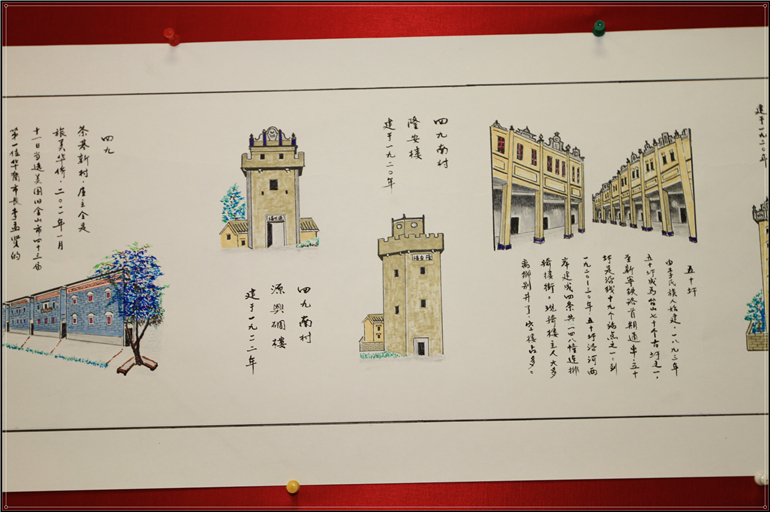 建于一九二〇年
五十圩
由李氏族人始建,一八九二年
五十圩成为台山七十个古圩之一。
至新宁铁路首期通车,五十
圩是沿线十九个站点之一,到
一九二〇-三〇年五十圩沿河两
岸建成四条共一四八幢连排
骑楼街。现骑楼主人大多
离鄉别井了,空楼占多。
四九南村
隆安楼
建于一九二〇年
四九南村
源興碉楼
建于一九二二年
四九
茶巷新村,屋主全是
旅美华侨,二〇一一年一月
十一日当选美国旧金山市四十三届
第一位华裔市长李孟贤的